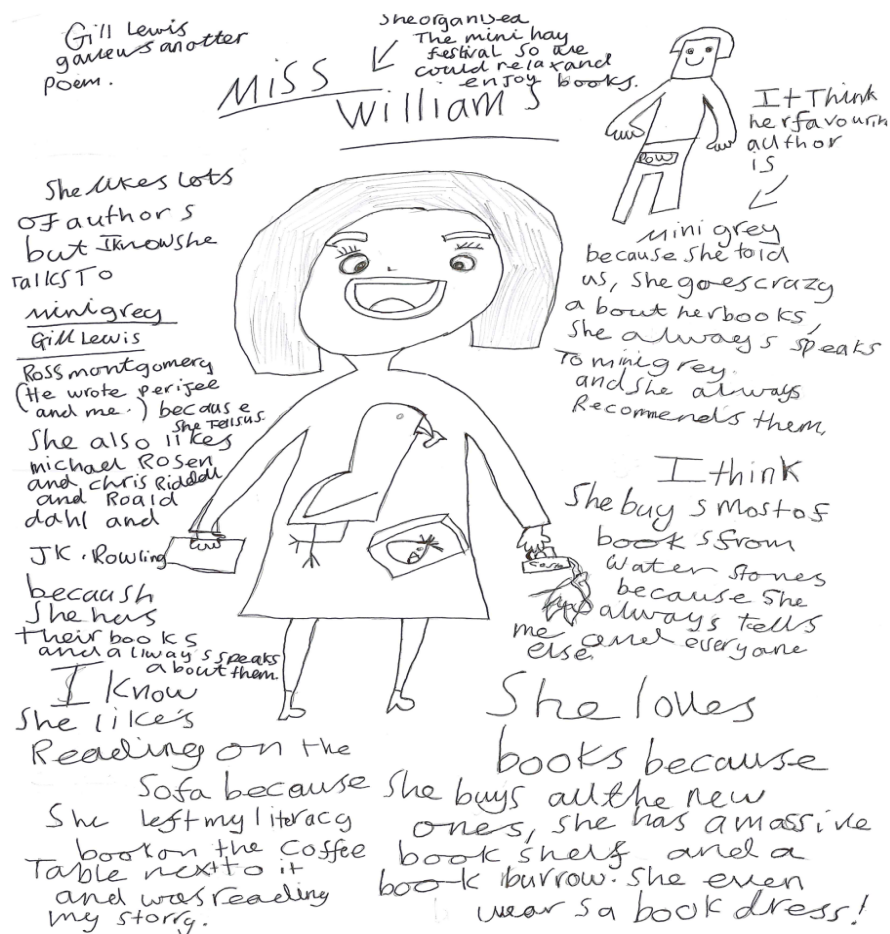 Gill Lewis
gave us another
poem.
She organised
The mini hay
festival so we
could relax and
enjoy books.
MISS
William's
It Think
her favourite
author
is
mini grey
because she told
us, she goes crazy
about her books,
She always speaks
To mini grey.
and she always
Recommends them.
POW
She likes lots
of authors
but I know she
Talks To
mini grey
Gill Lewis
Ross montgomery
(He wrote perijee
and me.) because
she Tells us.
She also likes
michael Rosen
and chris Riddell
and Roald
dahl and
JK. Rowling
becaush
She has
their books
and allway's speaks
about them.
I think
She buy's most of
books from
water stones
because she
always tells
me and everyone
else.
I know
She like's
Reading on the
Sofa because
She left my literacy
book on the coffee
Table next to it
and was reading
my storry.
She loves
books because
She buys all the new
ones, she has a massive
book shelf and a
book burrow. She even
wear's a book dress!